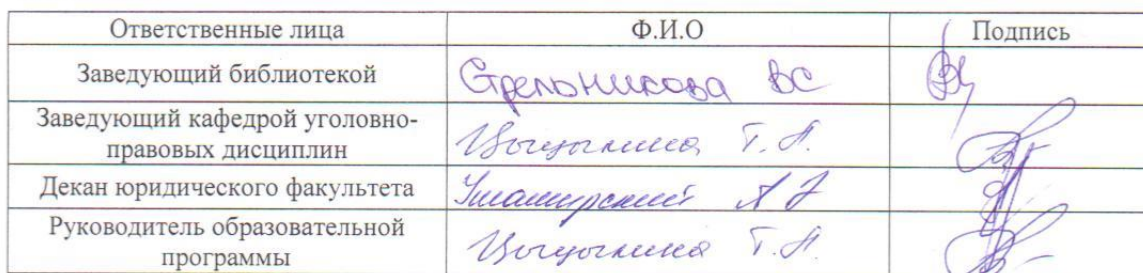 Ответственные лица Ф.И.О Подпись
Заведующий библиотекой Стрельникова ВС
Заведующий кафедрой уголовно-
правовых дисциплин Т.А.
Декан юридического факультета
Руководитель образовательной
программы Т.А.